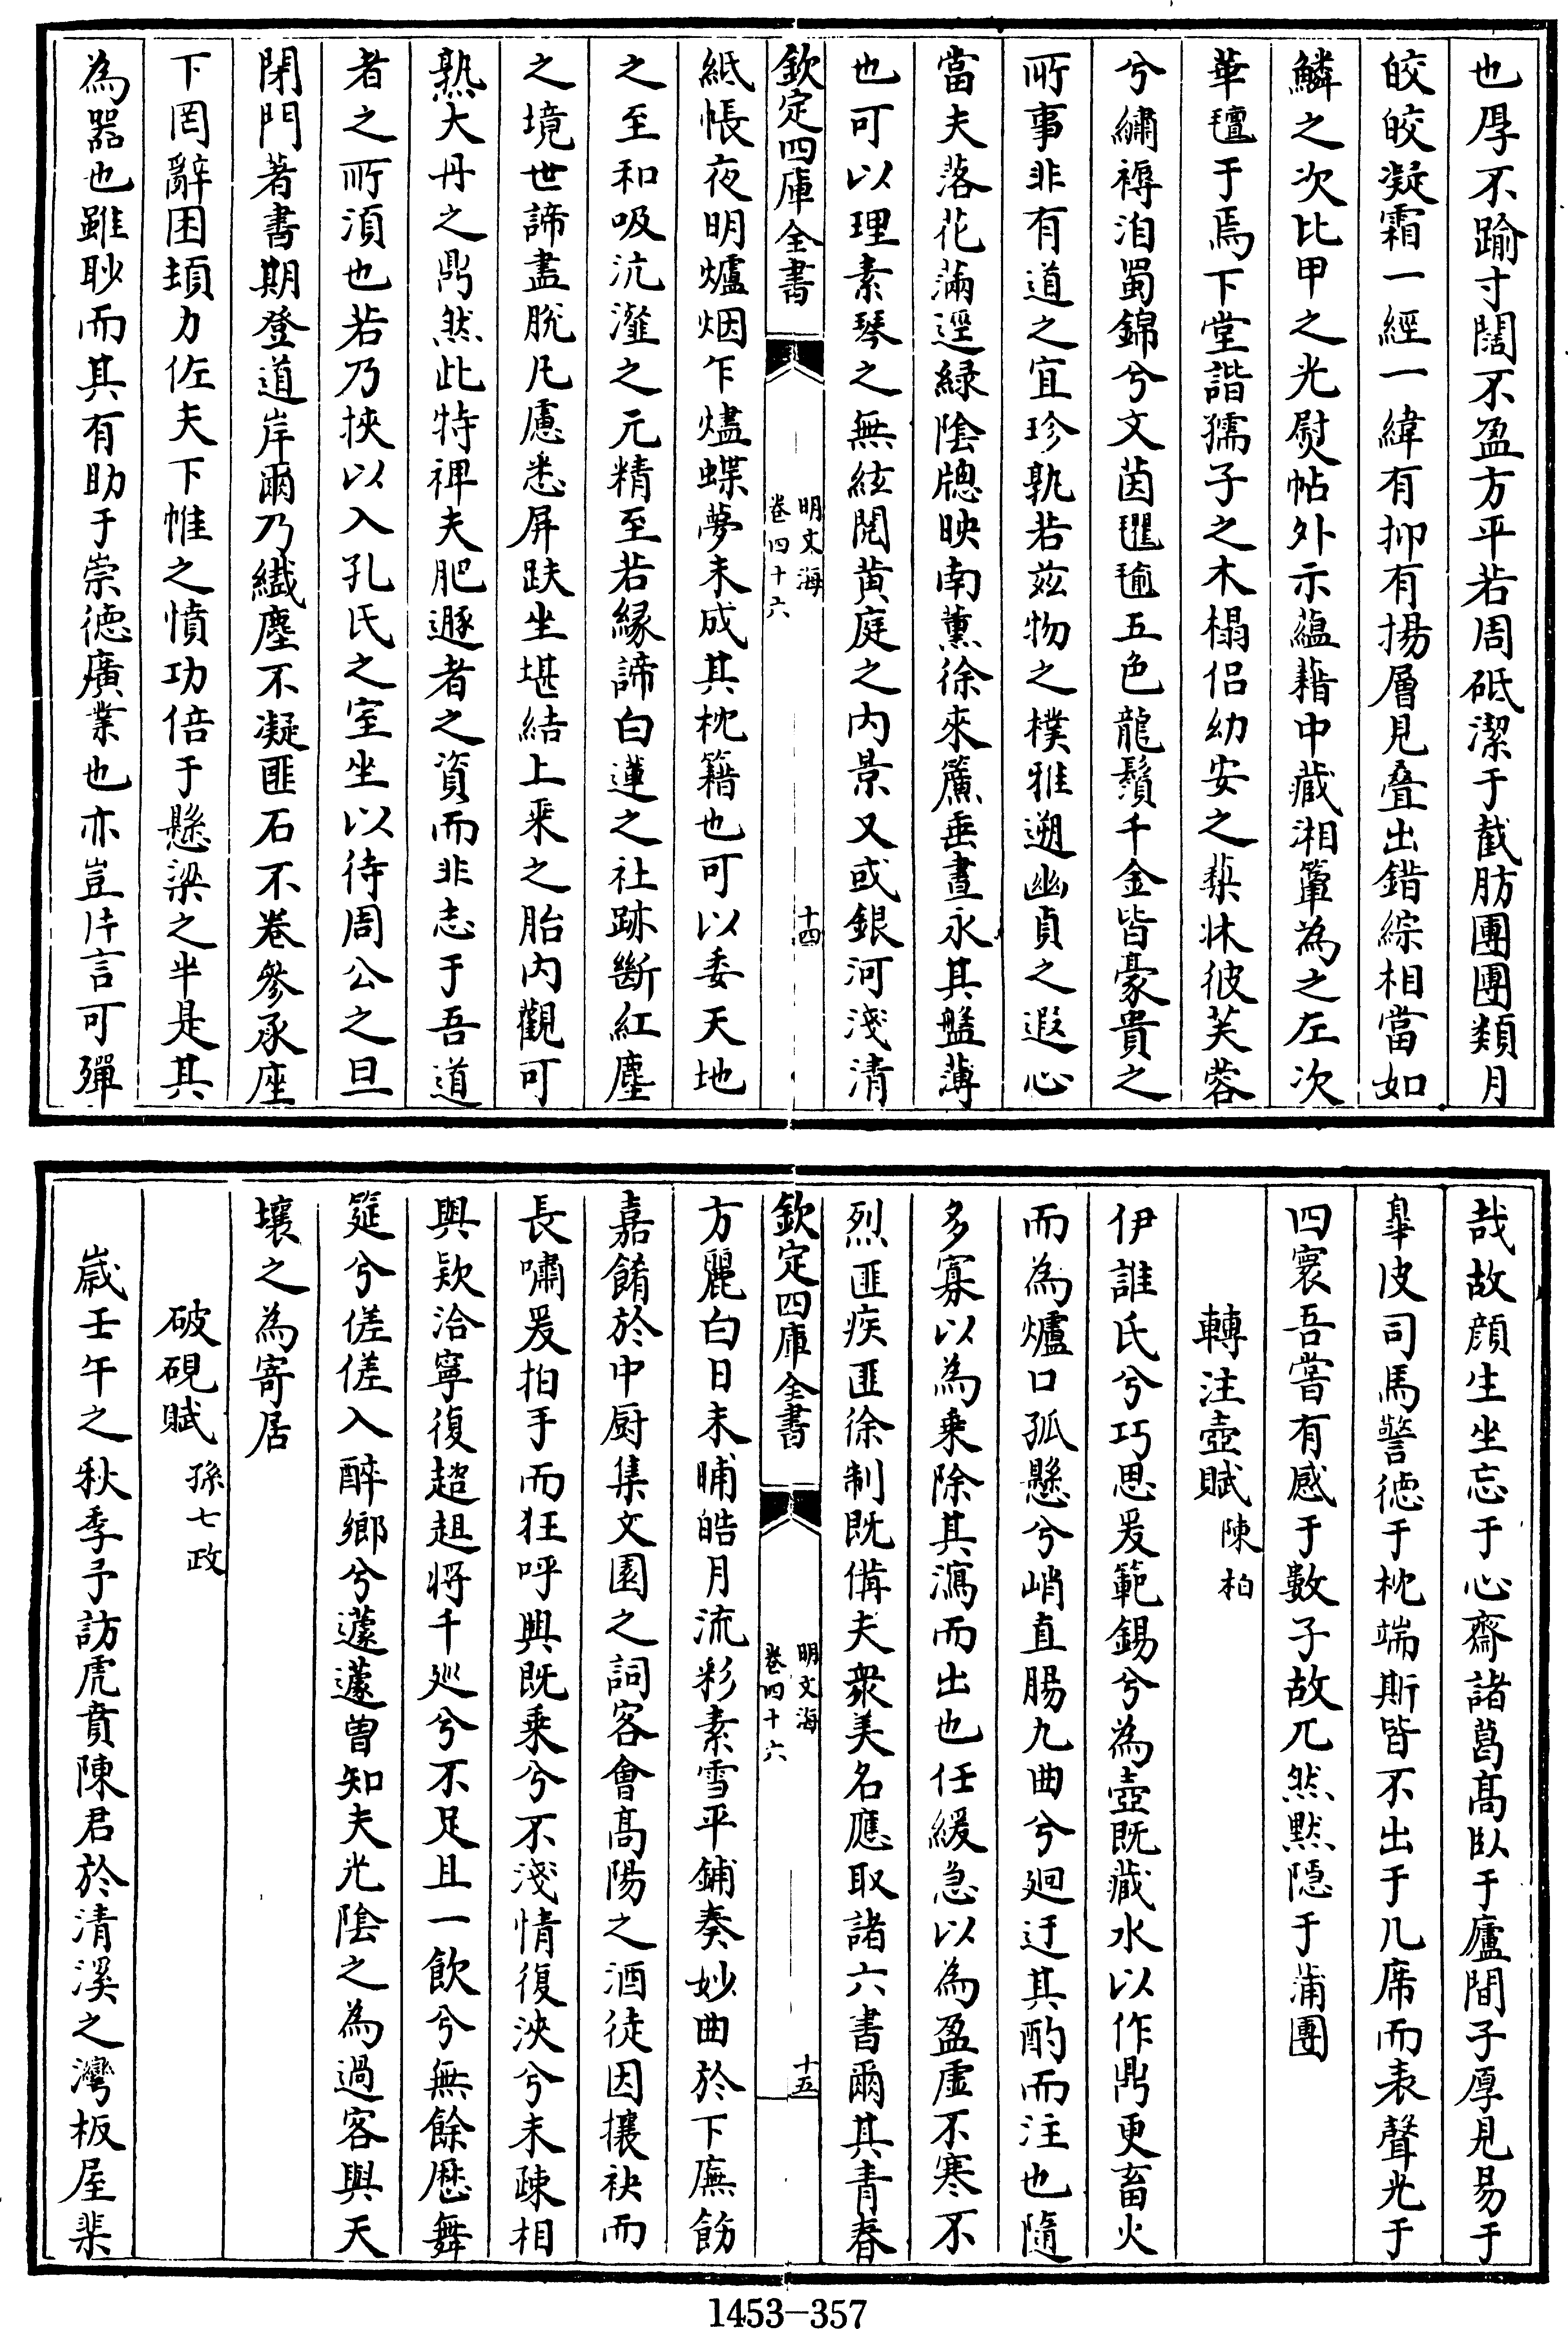 也厚不踰寸闊不盈方平若周砥潔于截肪團團類月
皎皎凝霜一經一緯有抑有揚層見叠出錯綜相當如
鱗之次比甲之光熨帖外示蘊藉中藏湘簟為之左次
華氊于焉下堂諧孺子之木榻侣幼安之藜牀彼芙蓉
兮繡褥洎蜀錦兮文茵氍毹五色龍鬚千金皆豪貴之
所事非有道之宜珍孰若兹物之樸雅遡幽貞之遐心
當夫落花滿逕緑陰牕映南薰徐來簾垂晝永其盤薄
也可以理素琴之無絃閱黄庭之内景又或銀河淺清
欽定四庫全書
明文海
卷四十六
十四
紙帳夜明爐烟乍燼蝶夢未成其枕籍也可以委天地
之至和吸沆瀣之元精至若縁諦白蓮之社跡斷紅塵
之境世諦盡脫凡慮悉屏趺坐堪結上乘之胎内觀可
熟大丹之鼎然此特裨夫肥遯者之資而非志于吾道
者之所湏也若乃挾以入孔氏之室坐以待周公之旦
閉門著書期登道岸爾乃纎塵不凝匪石不卷參承座
下罔辭困頓力佐夫下帷之憤功倍于懸梁之半是其
為器也雖眇而其有助于崇德廣業也亦豈片言可殫
哉故顔生坐忘于心齋諸葛髙臥于廬間子厚見易于
臯皮司馬警德于枕端斯皆不出于几席而表聲光于
四寰吾嘗有感于數子故兀然黙隠于蒲團
轉注壺賦陳柏
伊誰氏兮巧思爰範錫兮為壺既藏水以作鼎更畜火
而為爐口孤懸兮峭直腸九曲兮廻迂其酌而注也隨
多寡以為乗除其瀉而出也任緩急以為盈虚不寒不
烈匪疾匪徐制既俻夫衆美名應取諸六書爾其青春
欽定四庫全書
明文海
卷四十六
十五
方麗白日未晡皓月流彩素雪平鋪奏妙曲於下廡飭
嘉餚於中厨集文園之詞客會髙陽之酒徒因攘袂而
長嘯爰拍手而狂呼興既乗兮不淺情復浹兮未疎相
與欵洽寧復趑趄将千廵兮不足且一飲兮無餘屢舞
筵兮傞傞入醉鄉兮蘧蘧曽知夫光陰之為過客與天
壤之為寄居
破硯賦孫七政
嵗壬午之秋季予訪虎賁陳君於清溪之灣板屋棐
1453—357